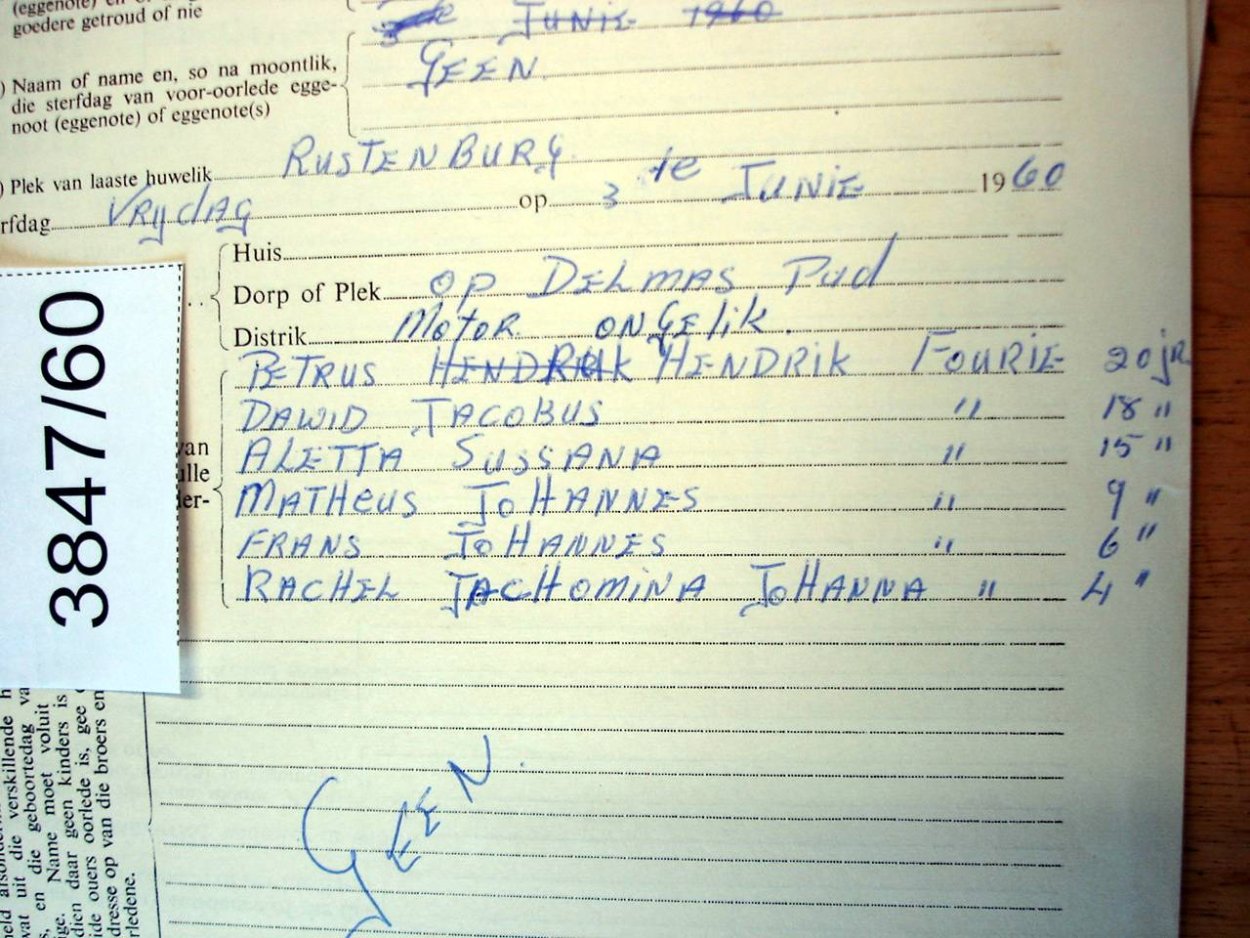 (eggenote) en
goedere getroud of nie
3 de JUNIE 1960
) Naam of name en, so na moontlik,
die sterfdag van voor-oorlede egge-
noot (eggenote) of eggenote(s)
GEEN
) Plek van laaste huwelik RUSTENBURG.
rfdag Vrydag op 3 de JUNIE 1960
Huis
Dorp of Plek op DELMAS Pad
Distrik MOTOR ONGELIK.
PETRUS HENDRIK HENDRIK FOURIE 20 jR
DAWID JACOBUS " 18 "
ALETTA SUSSANA " 15 "
MATHEUS JOHANNES " 9 "
FRANS JOHANNES " 6 "
RACHEL JACHOMINA JOHANNA " 4 "
van
ulle
der-
3847/60
GEEN.
verskillende h
wat uit die
en die geboortedag va
ige. Name moet voluit
dien daar geen kinders is
ide ouers oorlede is, gee
dresse op van die broers en
rledene.